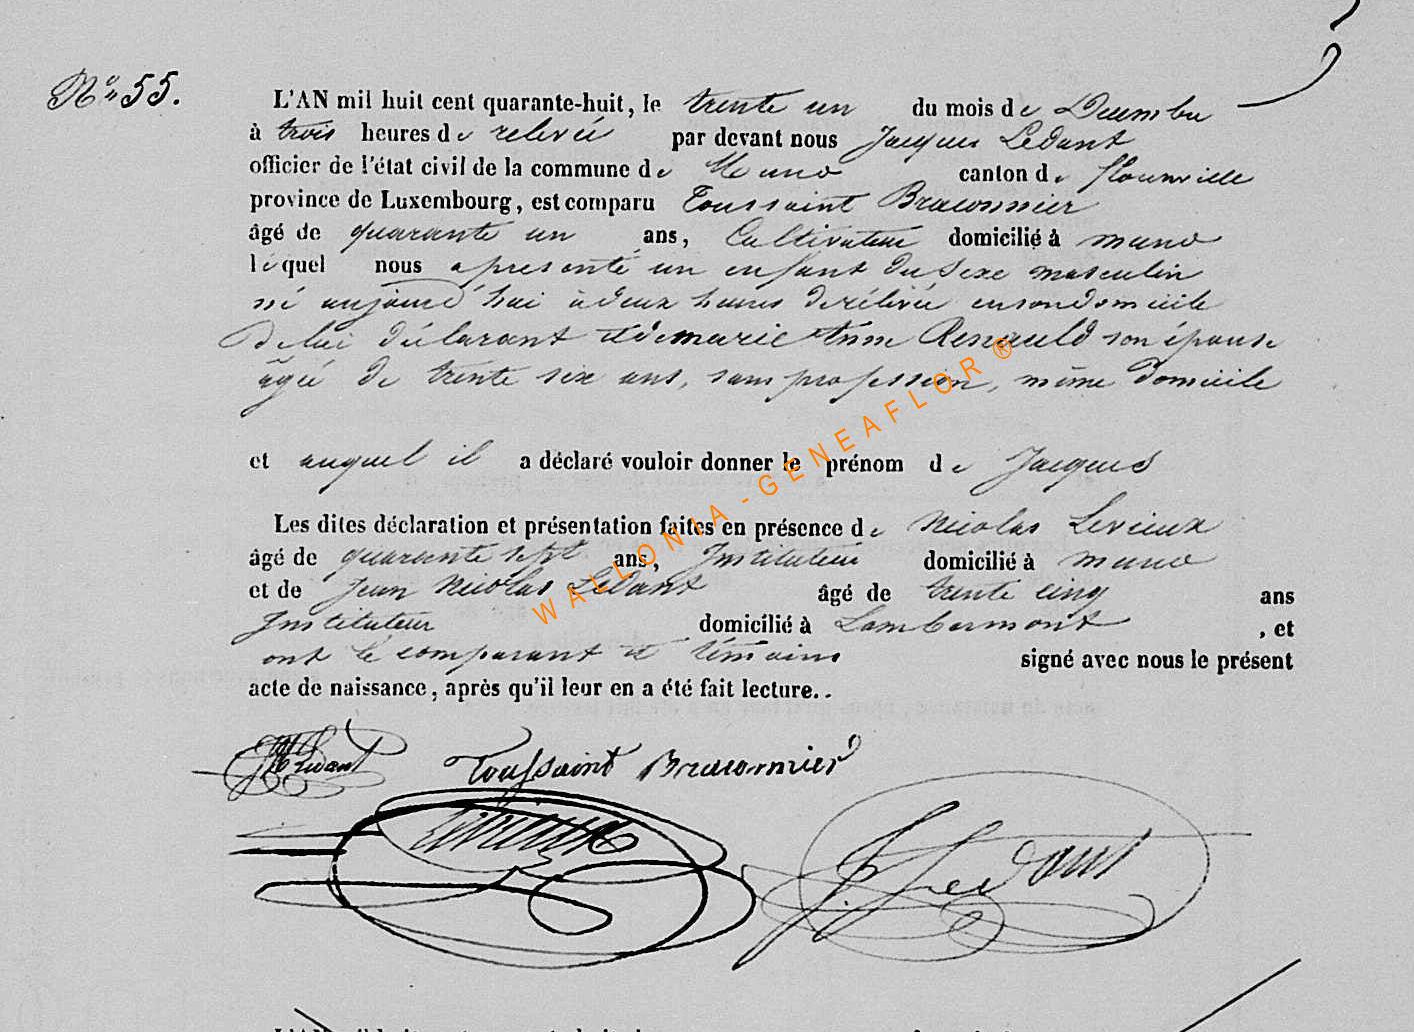 N° 55.
L'AN mil huit cent quarante-huit, le trente un du mois de Decembre
à trois heures de relevée par devant nous Jacques Ledant
officier de l'état civil de la commune de Muno canton de florenville
province de Luxembourg, est comparu Toussaint Braconnier
âgé de quarante un ans, Cultivateur domicilié à muno
lequel nous a presenté un enfant du Sexe masculin
né aujourd'hui à deux heures de rélévée en son domicile
de lui déclarant et de marie Anne Renauld son épouse
agée de trente six ans, sans profession, même domicile
et auquel il a déclaré vouloir donner le prénom de Jacques
Les dites déclaration et présentation faites en présence de Nicolas Levieux
âgé de quarante sept ans, Instituteur domicilié à muno
et de Jean Nicolas Ledant âgé de trente cinq ans
Instituteur domicilié à Lambermont , et
ont le comparant et témoins signé avec nous le présent
acte de naissance, après qu'il leur en a été fait lecture..
Ledant Toussaint Braconnier
Levieux J. Ledant
WALLONIA - GENEAFLOR ®